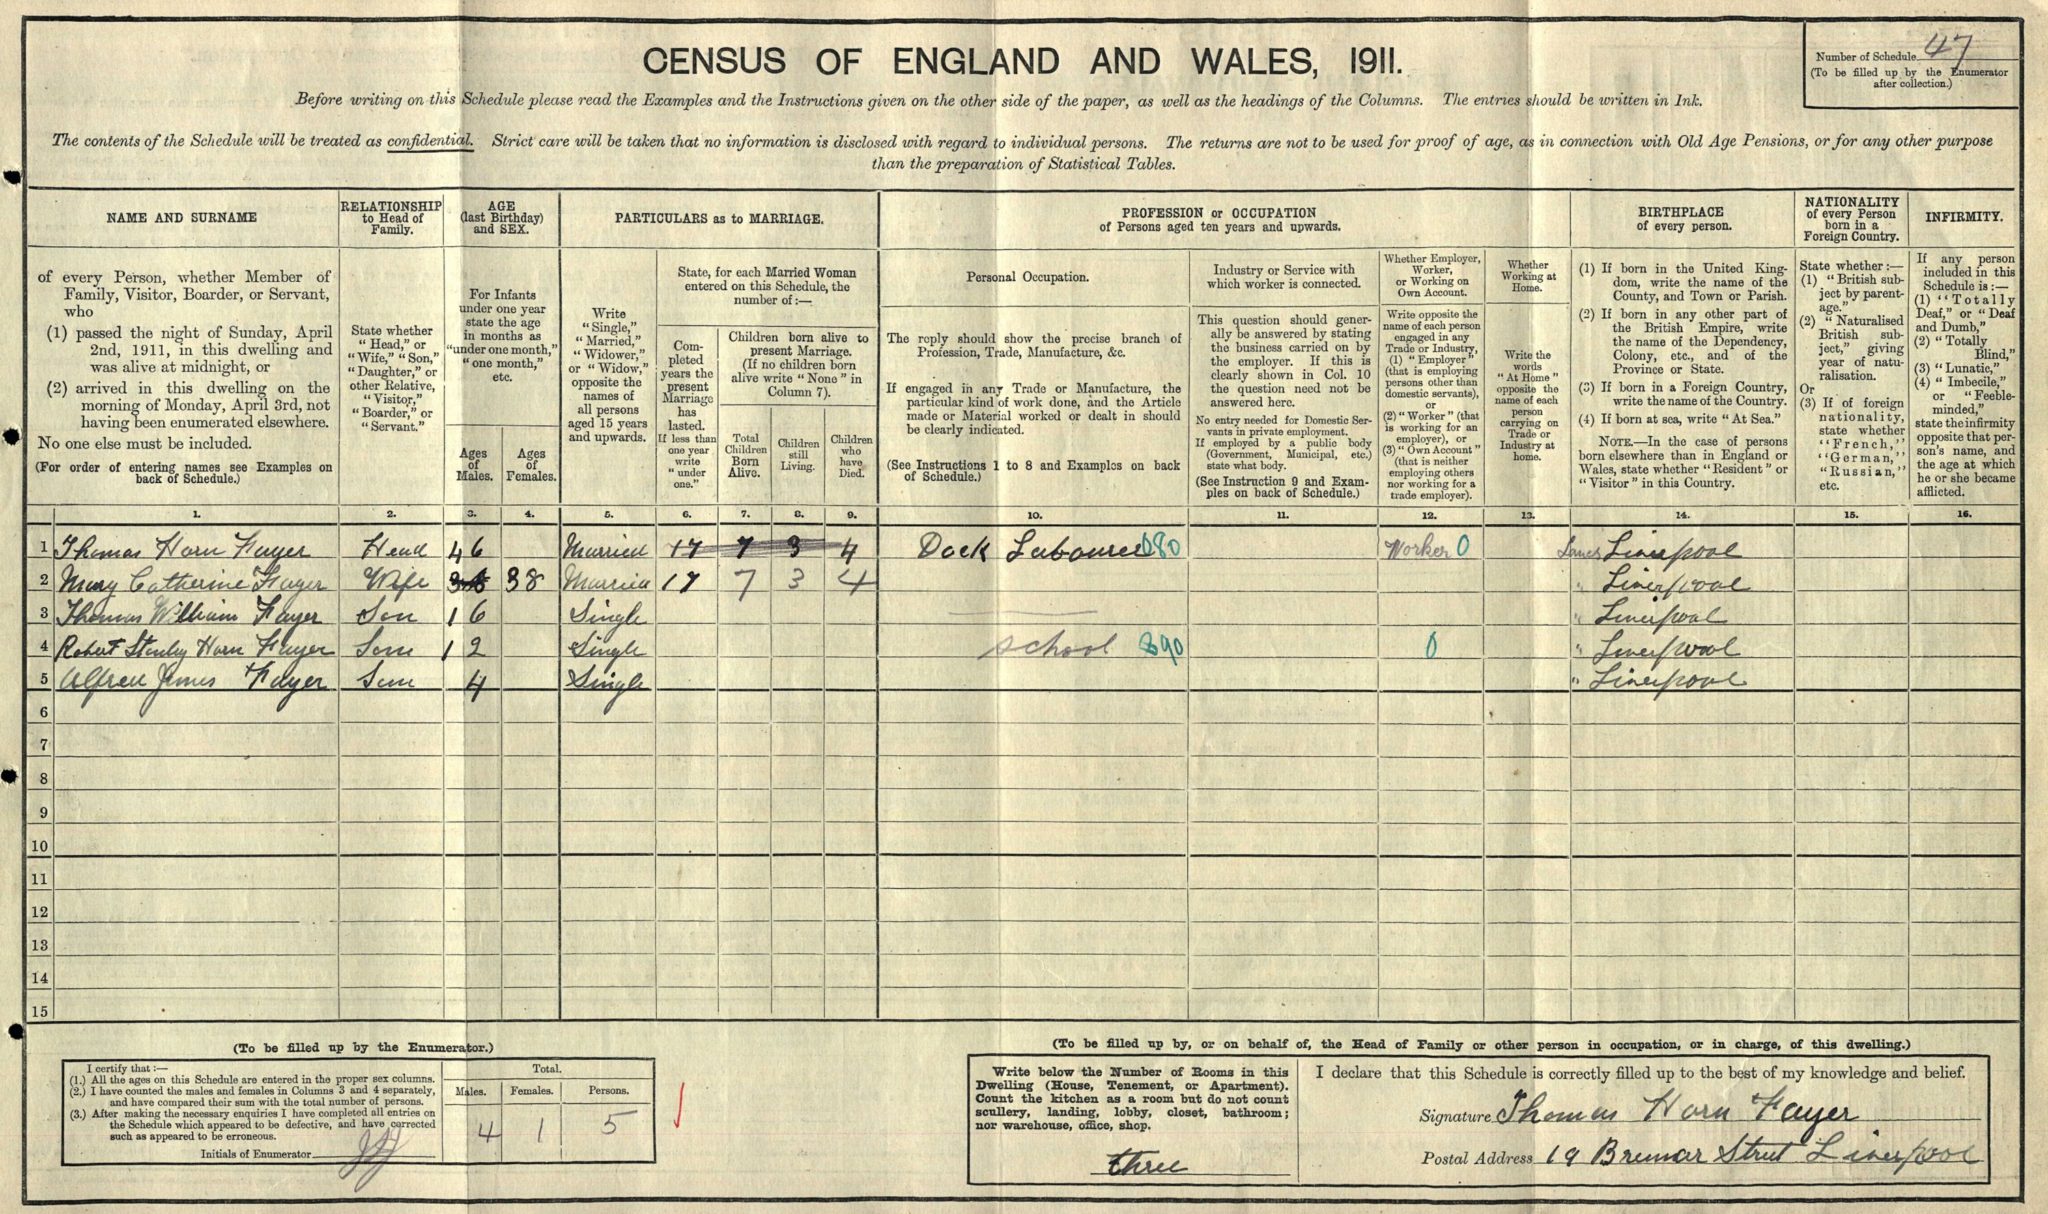 CENSUS OF ENGLAND AND WALES, 1911.
Number of Schedule 47
(To be filled up by the Enumerator
after collection.)
Before writing on this Schedule please read the Examples and the Instructions given on the other side of the paper, as well as the headings of the Columns. The entries should be written in Ink.
The contents of the Schedule will be treated as confidential. Strict care will be taken that no information is disclosed with regard to individual persons. The returns are not to be used for proof of age, as in connection with Old Age Pensions, or for any other purpose
than the preparation of Statistical Tables.
NAME AND SURNAME
of every Person, whether Member of
Family, Visitor, Boarder, or Servant,
who
(1) passed the night of Sunday, April
2nd, 1911, in this dwelling and
was alive at midnight, or
(2) arrived in this dwelling on the
morning of Monday, April 3rd, not
having been enumerated elsewhere.
No one else must be included.
(For order of entering names see Examples on
back of Schedule.)
RELATIONSHIP
to Head of
Family.
State whether
"Head," or
"Wife," "Son,"
"Daughter," or
other Relative,
"Visitor,"
"Boarder," or
"Servant."
AGE
(last Birthday)
and SEX.
For Infants
under one year
state the age
in months as
"under one month,"
"one month,"
etc.
Ages
of
Males.
Ages
of
Females.
PARTICULARS as to MARRIAGE.
Write
"Single,"
"Married,"
"Widower,"
or "Widow,"
opposite the
names of
all persons
aged 15 years
and upwards.
State, for each Married Woman
entered on this Schedule, the
number of:—
Com-
pleted
years the
present
Marriage
has
lasted.
If less than
one year
write
"under
one."
Children born alive to
present Marriage.
(If no children born
alive write "None" in
Column 7).
Total
Children
Born
Alive.
Children
still
Living.
Children
who
have
Died.
PROFESSION or OCCUPATION
of Persons aged ten years and upwards.
Personal Occupation.
The reply should show the precise branch of
Profession, Trade, Manufacture, &c.
If engaged in any Trade or Manufacture, the
particular kind of work done, and the Article
made or Material worked or dealt in should
be clearly indicated.
(See Instructions 1 to 8 and Examples on back
of Schedule.)
Industry or Service with
which worker is connected.
This question should gener-
ally be answered by stating
the business carried on by
the employer. If this is
clearly shown in Col. 10
the question need not be
answered here.
No entry needed for Domestic Ser-
vants in private employment.
If employed by a public body
(Government, Municipal, etc.)
state what body.
(See Instruction 9 and Exam-
ples on back of Schedule.)
Whether Employer,
Worker,
or Working on
Own Account.
Write opposite the
name of each person
engaged in any
Trade or Industry,
(1) "Employer"
(that is employing
persons other than
domestic servants),
or
(2) "Worker" (that
is working for an
employer), or
(3) "Own Account"
(that is neither
employing others
nor working for a
trade employer).
Whether
Working at
Home.
Write the
words
"At Home"
opposite the
name of each
person
carrying on
Trade or
Industry at
home.
BIRTHPLACE
of every person.
(1) If born in the United King-
dom, write the name of the
County, and Town or Parish.
(2) If born in any other part of
the British Empire, write
the name of the Dependency,
Colony, etc., and of the
Province or State.
(3) If born in a Foreign Country,
write the name of the Country.
(4) If born at sea, write "At Sea."
NOTE.—In the case of persons
born elsewhere than in England or
Wales, state whether "Resident" or
"Visitor" in this Country.
NATIONALITY
of every Person
born in a
Foreign Country.
State whether:—
(1) "British sub-
ject by parent-
age."
(2) "Naturalised
British sub-
ject," giving
year of natu-
ralisation.
Or
(3) If of foreign
nationality,
state whether
"French,"
"German,"
"Russian,"
etc.
INFIRMITY.
If any person
included in this
Schedule is:—
(1) "Totally
Deaf," or "Deaf
and Dumb,"
(2) "Totally
Blind,"
(3) "Lunatic,"
(4) "Imbecile,"
or "Feeble-
minded,"
state the infirmity
opposite that per-
son's name, and
the age at which
he or she became
afflicted.
1. 2. 3. 4. 5. 6. 7. 8. 9. 10. 11. 12. 13. 14. 15. 16.
1 Thomas Horn Fayer Head 46 Married 17 7 3 4 Dock Labourer 080 Worker 0 Lancs Liverpool
2 Mary Catherine Fayer Wife 38 Married 17 7 3 4 " Liverpool
3 Thomas William Fayer Son 16 Single " Liverpool
4 Robert Stanley Horn Fayer Son 12 Single school 390 0 " Liverpool
5 Alfred James Fayer Son 4 Single " Liverpool
6
7
8
9
10
11
12
13
14
15
(To be filled up by the Enumerator.)
I certify that:—
(1.) All the ages on this Schedule are entered in the proper sex columns.
(2.) I have counted the males and females in Columns 3 and 4 separately,
and have compared their sum with the total number of persons.
(3.) After making the necessary enquiries I have completed all entries on
the Schedule which appeared to be defective, and have corrected
such as appeared to be erroneous.
Initials of Enumerator
Total.
Males. Females. Persons.
4 1 5
(To be filled up by, or on behalf of, the Head of Family or other person in occupation, or in charge, of this dwelling.)
Write below the Number of Rooms in this
Dwelling (House, Tenement, or Apartment).
Count the kitchen as a room but do not count
scullery, landing, lobby, closet, bathroom;
nor warehouse, office, shop.
three
I declare that this Schedule is correctly filled up to the best of my knowledge and belief.
Signature Thomas Horn Fayer
Postal Address 19 Bremar Street Liverpool